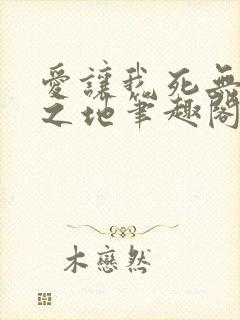 愛讓我死無
之地筆趣閣
木戀然